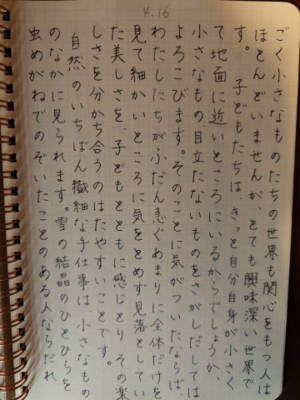 4.16
ごく小さなものたちの世界も関心をもつ人は
ほとんどいませんが、とても興味深い世界で
す。子どもたちは、きっと自分自身が小さく
て地面に近いところにいるからでしょうか、
小さなもの目立たないものをさがしだしては
よろこびます。そのことに気がついたならば、
わたしたちがふだん急ぐあまりに全体だけを
見て細かいところに気をとめず見落としてい
た美しさを、子どもとともに感じとり、その楽
しさを分かち合うのはたやすいことです。
自然のいちばん繊細な手仕事は、小さなもの
のなかに見られます。雪の結晶のひとひらを
虫めがねでのぞいたことのある人ならだれ